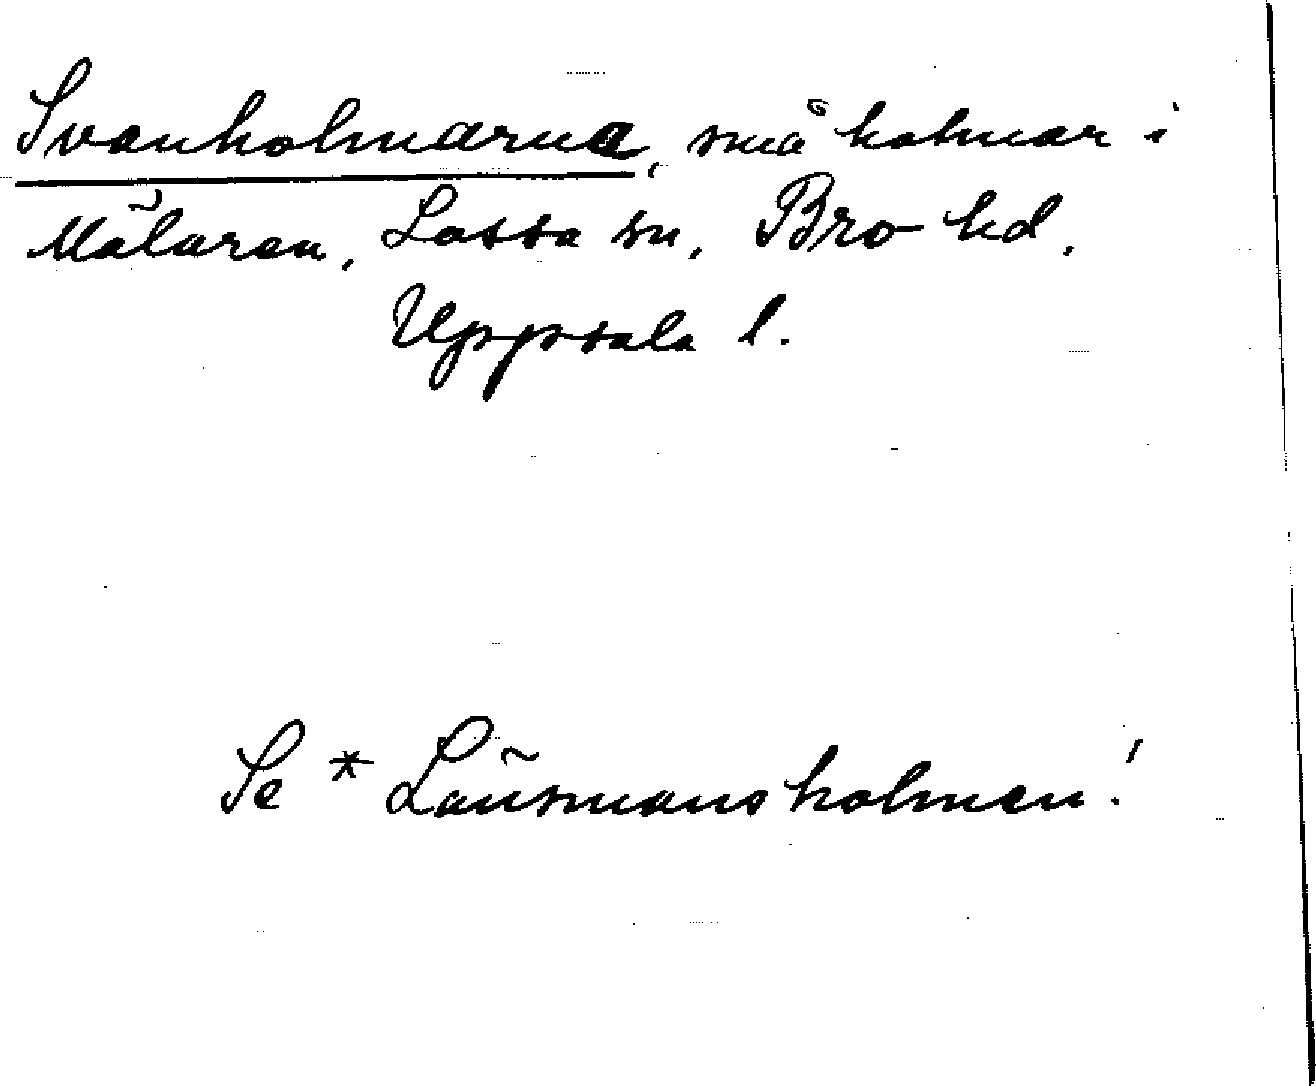 Svanholmarna, små holmar i
Mälaren, Lossa sn, Bro hd,
Uppsala l.
Se * Länsmansholmen!